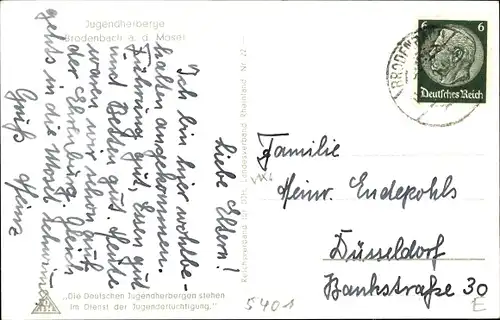 Jugendherberge
Brodenbach a. d. Mosel
Liebe Eltern!
Ich bin hier wohlbe-
halten angekommen.
Führung gut, Essen gut
und Betten gut. Heute
waren wir schon auf
der Ehrenburg. Gleich
gehts in die Mosel schwimmen
Gruß Heinz
„Die Deutschen Jugendherbergen stehen
im Dienst der Jugendertüchtigung."
Reichsverband für DJH, Landesverband Rheinland Nr. 22
6 6
Deutsches Reich
BRODENBACH
Familie
Heinr. Endepohls
Düsseldorf
Bankstraße 30
E
5401